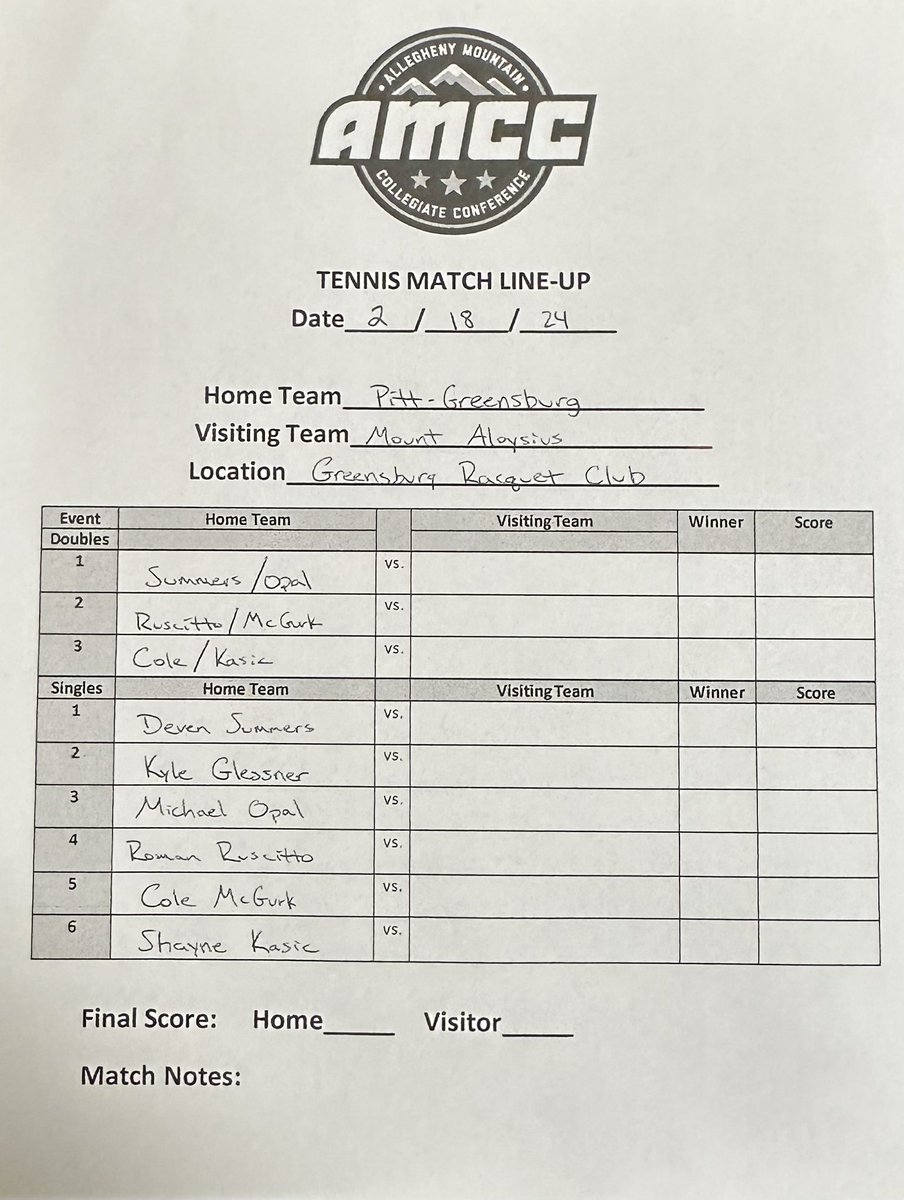 ALLEGHENY MOUNTAIN
AMCC
COLLEGIATE CONFERENCE
TENNIS MATCH LINE-UP
Date 2 / 18 / 24
Home Team Pitt-Greensburg
Visiting Team Mount Aloysius
Location Greensburg Racquet Club
Event Home Team Visiting Team Winner Score
Doubles
1 Summers/Opal vs.
2 Ruscitto/McGurk vs.
3 Cole/Kasic vs.
Singles Home Team Visiting Team Winner Score
1 Deven Summers vs.
2 Kyle Glessner vs.
3 Michael Opal vs.
4 Roman Ruscitto vs.
5 Cole McGurk vs.
6 Shayne Kasic vs.
Final Score: Home_____ Visitor_____
Match Notes: